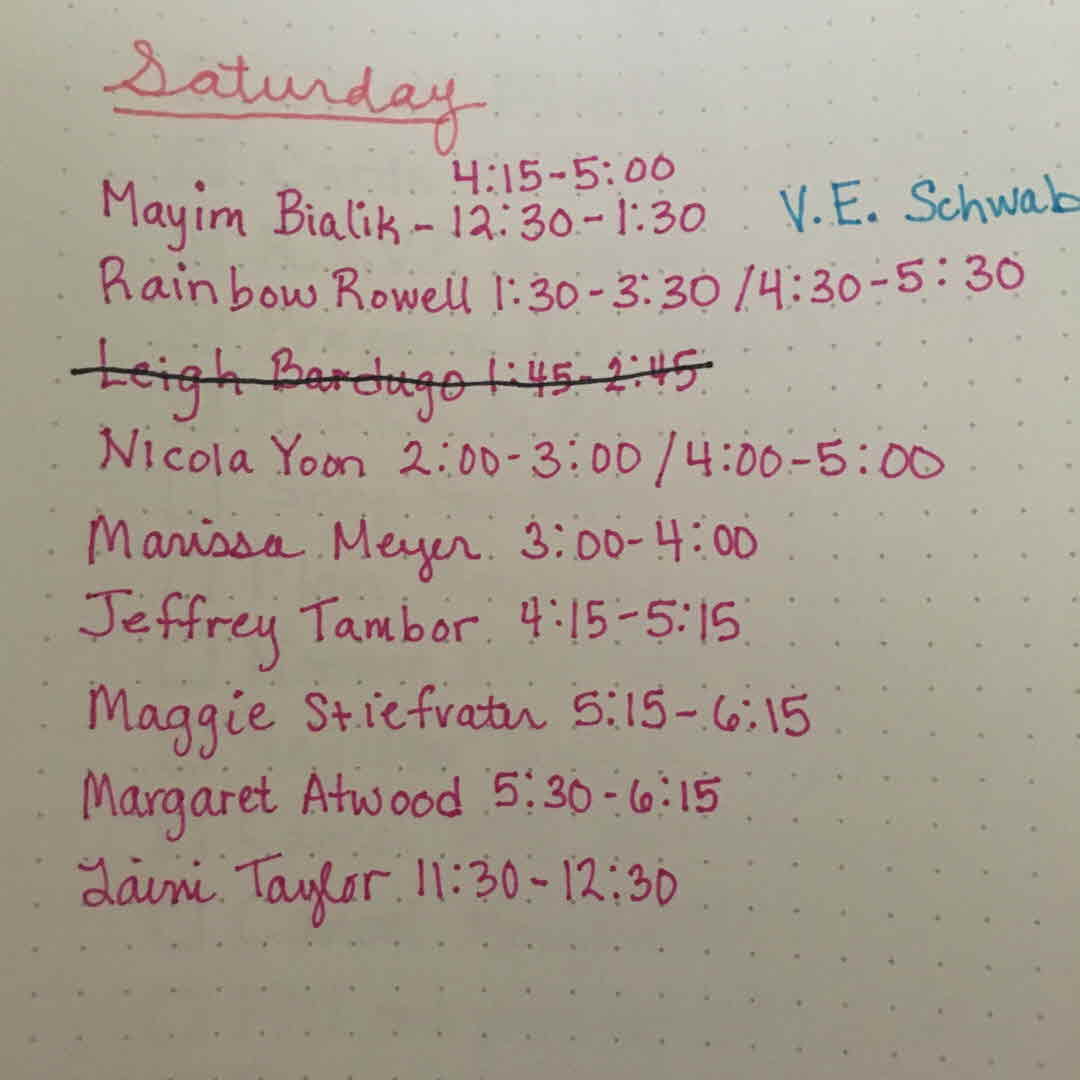 Saturday
4:15-5:00
Mayim Bialik - 12:30-1:30 V.E. Schwab
Rainbow Rowell 1:30-3:30 / 4:30-5:30
Leigh Bardugo 1:45-2:45
Nicola Yoon 2:00-3:00 / 4:00-5:00
Marissa Meyer 3:00-4:00
Jeffrey Tambor 4:15-5:15
Maggie Stiefvater 5:15-6:15
Margaret Atwood 5:30-6:15
Laini Taylor 11:30-12:30